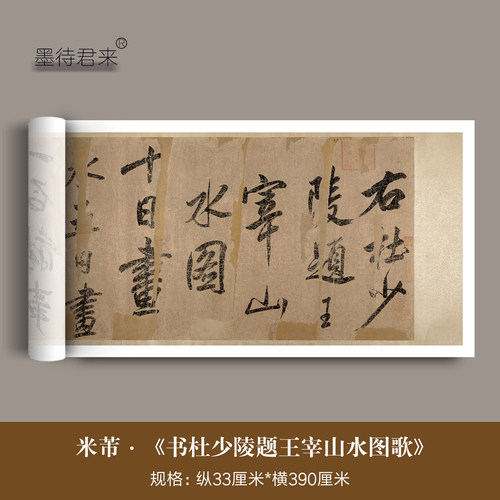 墨待君来®
右杜少
陵題王
宰山
水圖
十日畫
水五日畫
米芾·《书杜少陵题王宰山水图歌》
规格：纵33厘米*横390厘米